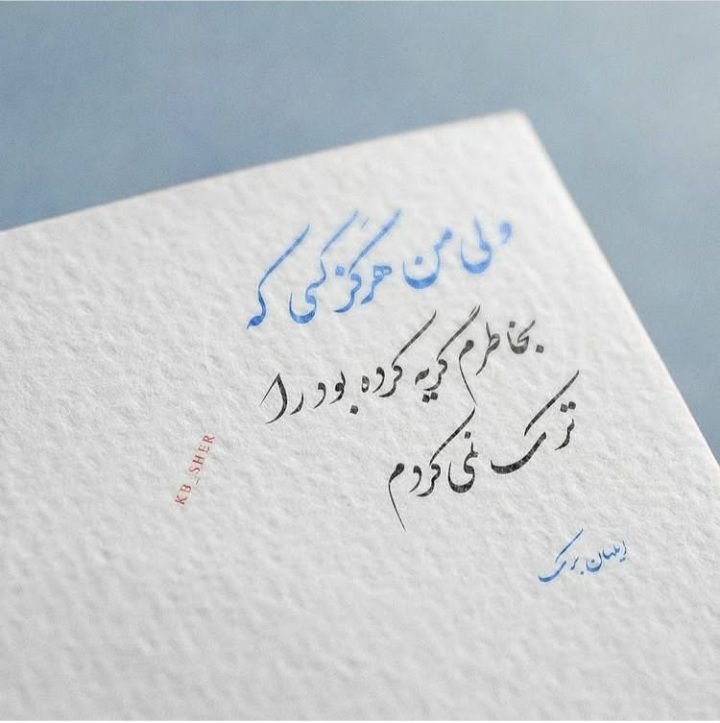 ولی من هرگز کسی که
بخاطرم گریه کرده بود را
ترک نمی‌کردم
KB_SHER